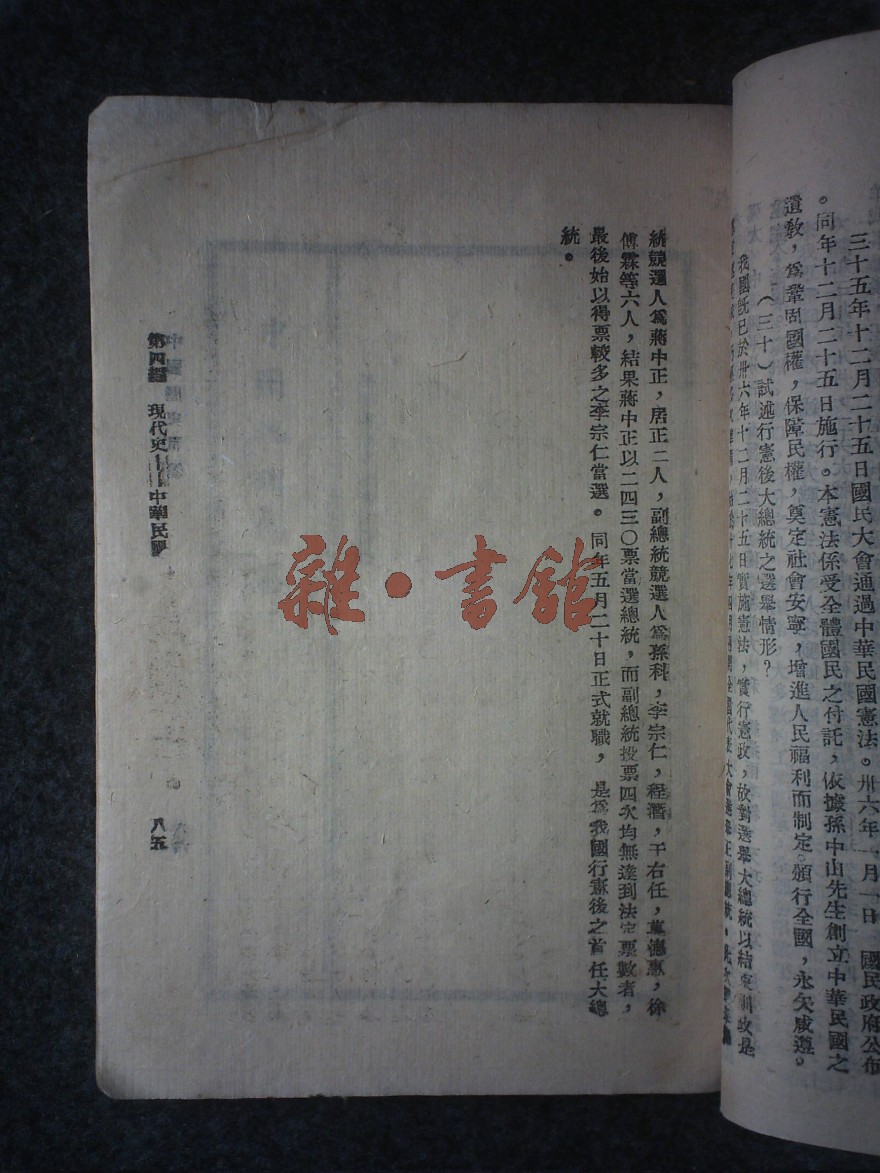 三十五年十二月二十五日國民大會通過中華民國憲法。卅六年一月一日 國民政府公布
。同年十二月二十五日施行。本憲法係受全體國民之付託，依據孫中山先生創立中華民國之
遺敎，爲鞏固國權，保障民權，奠定社會安寧，增進人民福利而制定。頒行全國，永矢咸遵。
（三十）試述行憲後大總統之選舉情形？
我國旣已於卅六年十二月二十五日實施憲法，實行憲政，故對選舉大總統以結束訓政是
統競選人爲蔣中正，居正二人，副總統競選人爲孫科，李宗仁，程潛，于右任，莫德惠，徐
傅霖等六人，結果蔣中正以二四三〇票當選總統，而副總統投票四次均無達到法定票數者，
最後始以得票較多之李宗仁當選。同年五月二十日正式就職，是爲我國行憲後之首任大總
統。
第四編 現代史——中華民國
八五
雜·書館